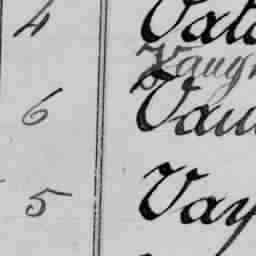 4 Vat
Vaug
6 Vau
5 Vay